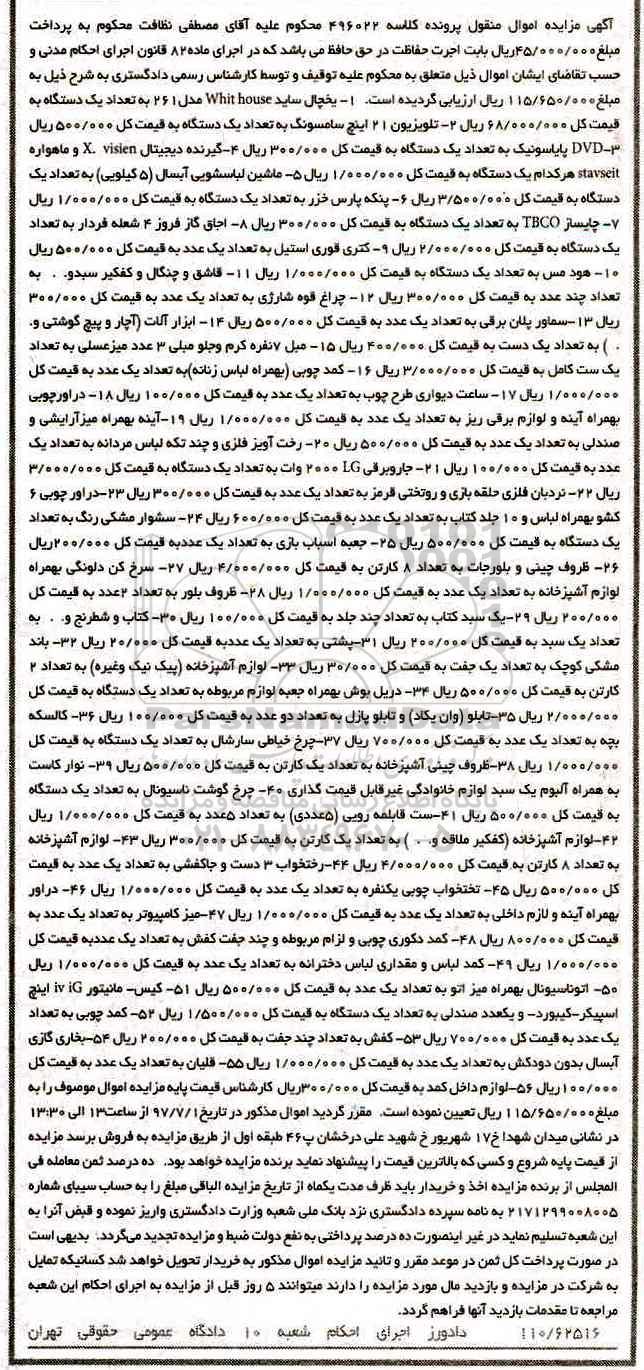 آگهی مزایده اموال منقول پرونده کلاسه ۴۹۶۰۲۲ محکوم علیه آقای مصطفی نظافت محکوم به پرداخت
مبلغ۴۵/۰۰۰/۰۰۰ریال بابت اجرت حفاظت در حق حافظ می باشد که در اجرای ماده۸۲ قانون اجرای احکام مدنی و
حسب تقاضای ایشان اموال ذیل متعلق به محکوم علیه توقیف و توسط کارشناس رسمی دادگستری به شرح ذیل به
مبلغ۱۱۵/۶۵۰/۰۰۰ ریال ارزیابی گردیده است. ۱- یخچال ساید Whit house مدل۲۶۱ به تعداد یک دستگاه به
قیمت کل ۶۸/۰۰۰/۰۰۰ ریال ۲- تلویزیون ۲۱ اینچ سامسونگ به تعداد یک دستگاه به قیمت کل ۵۰۰/۰۰۰ ریال
۳-DVD پاناسونیک به تعداد یک دستگاه به قیمت کل ۳۰۰/۰۰۰ ریال ۴-گیرنده دیجیتال X. visien و ماهواره
stavseit هرکدام یک دستگاه به قیمت کل ۱/۰۰۰/۰۰۰ ریال ۵- ماشین لباسشویی آبسال (۵ کیلویی) به تعداد یک
دستگاه به قیمت کل ۳/۵۰۰/۰۰۰ ریال ۶- پنکه پارس خزر به تعداد یک دستگاه به قیمت کل ۱/۰۰۰/۰۰۰ ریال
۷- چایساز TBCO به تعداد یک دستگاه به قیمت کل ۳۰۰/۰۰۰ ریال ۸- اجاق گاز فروز ۴ شعله فردار به تعداد
یک دستگاه به قیمت کل ۲/۰۰۰/۰۰۰ ریال ۹- کتری قوری استیل به تعداد یک عدد به قیمت کل ۵۰۰/۰۰۰ ریال
۱۰- هود مس به تعداد یک دستگاه به قیمت کل ۱/۰۰۰/۰۰۰ ریال ۱۱- قاشق و چنگال و کفگیر سبدو. . به
تعداد چند عدد به قیمت کل ۳۰۰/۰۰۰ ریال ۱۲- چراغ قوه شارژی به تعداد یک عدد به قیمت کل ۳۰۰/۰۰۰
ریال ۱۳-سماور پلان برقی به تعداد یک عدد به قیمت کل ۵۰۰/۰۰۰ ریال ۱۴- ابزار آلات (آچار و پیچ گوشتی و.
. ) به تعداد یک دست به قیمت کل ۴۰۰/۰۰۰ ریال ۱۵- مبل ۷نفره کرم وجلو مبلی ۳ عدد میزعسلی به تعداد
یک ست کامل به قیمت کل ۳/۰۰۰/۰۰۰ ریال ۱۶- کمد چوبی (بهمراه لباس زنانه)به تعداد یک عدد به قیمت کل
۱/۰۰۰/۰۰۰ ریال ۱۷- ساعت دیواری طرح چوب به تعداد یک عدد به قیمت کل ۱۰۰/۰۰۰ ریال ۱۸- دراورچوبی
بهمراه آینه و لوازم برقی ریز به تعداد یک عدد به قیمت کل ۱/۰۰۰/۰۰۰ ریال ۱۹-آینه بهمراه میزآرایشی و
صندلی به تعداد یک عدد به قیمت کل ۵۰۰/۰۰۰ ریال ۲۰- رخت آویز فلزی و چند تکه لباس مردانه به تعداد یک
عدد به قیمت کل ۱۰۰/۰۰۰ ریال ۲۱- جاروبرقی LG ۲۰۰۰ وات به تعداد یک دستگاه به قیمت کل ۳/۰۰۰/۰۰۰
ریال ۲۲- نردبان فلزی حلقه بازی و روتختی قرمز به تعداد یک عدد به قیمت کل ۳۰۰/۰۰۰ ریال ۲۳-دراور چوبی ۶
کشو بهمراه لباس و ۱۰ جلد کتاب به تعداد یک عدد به قیمت کل ۶۰۰/۰۰۰ ریال ۲۴- سشوار مشکی رنگ به تعداد
یک دستگاه به قیمت کل ۵۰۰/۰۰۰ ریال ۲۵- جعبه اسباب بازی به تعداد یک عددبه قیمت کل ۲۰۰/۰۰۰ریال
۲۶- ظروف چینی و بلورجات به تعداد ۸ کارتن به قیمت کل ۴/۰۰۰/۰۰۰ ریال ۲۷- سرخ کن دلونگی بهمراه
لوازم آشپزخانه به تعداد یک عدد به قیمت کل ۱/۰۰۰/۰۰۰ ریال ۲۸- ظروف بلور به تعداد ۲عدد به قیمت کل
۲۰۰/۰۰۰ ریال ۲۹-یک سبد کتاب به تعداد چند جلد به قیمت کل ۱۰۰/۰۰۰ ریال ۳۰- کتاب و شطرنج و. . به
تعداد یک سبد به قیمت کل ۲۰۰/۰۰۰ ریال ۳۱-پشتی به تعداد یک عددبه قیمت کل ۲۰/۰۰۰ ریال ۳۲- باند
مشکی کوچک به تعداد یک جفت به قیمت کل ۳۰/۰۰۰ ریال ۳۳- لوازم آشپزخانه (پیک نیک وغیره) به تعداد ۲
کارتن به قیمت کل ۵۰۰/۰۰۰ ریال ۳۴- دریل بوش بهمراه جعبه لوازم مربوطه به تعداد یک دستگاه به قیمت کل
۲/۰۰۰/۰۰۰ ریال ۳۵-تابلو (وان یکاد) و تابلو پازل به تعداد دو عدد به قیمت کل ۱۰۰/۰۰۰ ریال ۳۶- کالسکه
بچه به تعداد یک عدد به قیمت کل ۷۰۰/۰۰۰ ریال ۳۷-چرخ خیاطی سارشال به تعداد یک دستگاه به قیمت کل
۱/۰۰۰/۰۰۰ ریال ۳۸-ظروف چینی آشپزخانه به تعداد یک کارتن به قیمت کل ۵۰۰/۰۰۰ ریال ۳۹- نوار کاست
به همراه آلبوم یک سبد لوازم خانوادگی غیرقابل قیمت گذاری ۴۰- چرخ گوشت ناسیونال به تعداد یک دستگاه
به قیمت کل ۵۰۰/۰۰۰ ریال ۴۱-ست قابلمه رویی (۵عددی) به تعداد ۵عدد به قیمت کل ۱/۰۰۰/۰۰۰ ریال
۴۲-لوازم آشپزخانه (کفگیر ملاقه و. . ) به تعداد یک کارتن به قیمت کل ۳۰۰/۰۰۰ ریال ۴۳- لوازم آشپزخانه
به تعداد ۸ کارتن به قیمت کل ۴/۰۰۰/۰۰۰ ریال ۴۴-رختخواب ۳ دست و جاکفشی به تعداد یک عدد به قیمت
کل ۵۰۰/۰۰۰ ریال ۴۵- تختخواب چوبی یکنفره به تعداد یک عدد به قیمت کل ۱/۰۰۰/۰۰۰ ریال ۴۶- دراور
بهمراه آینه و لازم داخلی به تعداد یک عدد به قیمت کل ۱/۰۰۰/۰۰۰ ریال ۴۷-میز کامپیوتر به تعداد یک عدد به
قیمت کل ۸۰۰/۰۰۰ ریال ۴۸- کمد دکوری چوبی و لزام مربوطه و چند جفت کفش به تعداد یک عددبه قیمت کل
۱/۰۰۰/۰۰۰ ریال ۴۹- کمد لباس و مقداری لباس دخترانه به تعداد یک عدد به قیمت کل ۱/۰۰۰/۰۰۰ ریال
۵۰- اتوناسیونال بهمراه میز اتو به تعداد یک عدد به قیمت کل ۵۰۰/۰۰۰ ریال ۵۱- کیس- مانیتور iv iG اینچ
اسپیکر-کیبورد- و یکعدد صندلی به تعداد یک دستگاه به قیمت کل ۱/۵۰۰/۰۰۰ ریال ۵۲- کمد چوبی به تعداد
یک عدد به قیمت کل ۷۰۰/۰۰۰ ریال ۵۳- کفش به تعداد چند جفت به قیمت کل ۲۰۰/۰۰۰ ریال ۵۴-بخاری گازی
آبسال بدون دودکش به تعداد یک عدد به قیمت کل ۱/۰۰۰/۰۰۰ ریال ۵۵- قلیان به تعداد یک عدد به قیمت کل
۱۰۰/۰۰۰ریال ۵۶-لوازم داخل کمد به قیمت کل ۳۰۰/۰۰۰ریال کارشناس قیمت پایه مزایده اموال موصوف را به
مبلغ۱۱۵/۶۵۰/۰۰۰ ریال تعیین نموده است. مقرر گردید اموال مذکور در تاریخ۹۷/۷/۱ از ساعت۱۳ الی ۱۳:۳۰
در نشانی میدان شهدا خ۱۷ شهریور خ شهید علی درخشان پ۴۶ طبقه اول از طریق مزایده به فروش برسد مزایده
از قیمت پایه شروع و کسی که بالاترین قیمت را پیشنهاد نماید برنده مزایده خواهد بود. ده درصد ثمن معامله فی
المجلس از برنده مزایده اخذ و خریدار باید ظرف مدت یکماه از تاریخ مزایده الباقی مبلغ را به حساب سیبای شماره
۲۱۷۱۲۹۹۰۰۸۰۰۵ به نامه سپرده دادگستری نزد بانک ملی شعبه وزارت دادگستری واریز نموده و قبض آنرا به
این شعبه تسلیم نماید در غیر اینصورت ده درصد پرداختی به نفع دولت ضبط و مزایده تجدید می‌گردد. بدیهی است
در صورت پرداخت کل ثمن در موعد مقرر و تائید مزایده اموال مذکور به خریدار تحویل خواهد شد کسانیکه تمایل
به شرکت در مزایده و بازدید مال مورد مزایده را دارند میتوانند ۵ روز قبل از مزایده به اجرای احکام این شعبه
مراجعه تا مقدمات بازدید آنها فراهم گردد.
۱۱۰/۶۲۵۱۶ دادورز اجرای احکام شعبه ۱۰ دادگاه عمومی حقوقی تهران